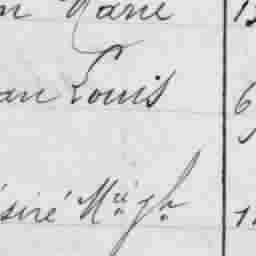 n Marie 1
an Louis 6
siré Mie Jh 1